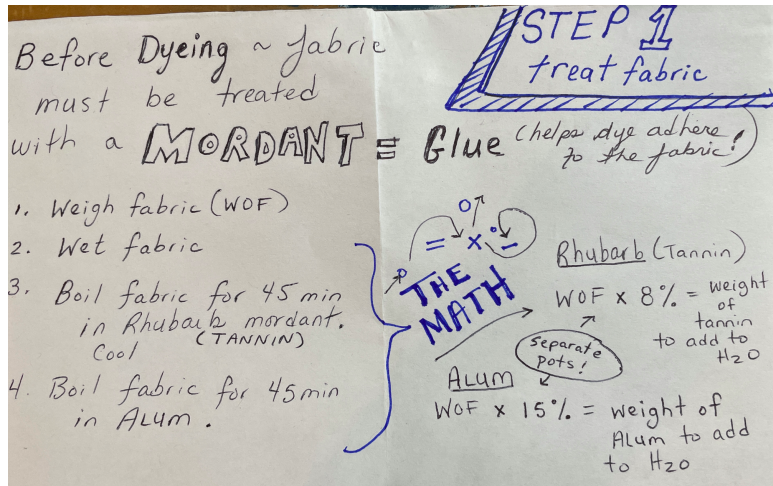 Before Dyeing ~ fabric
must be treated
with a MORDANT = Glue (helps dye adhere
to the fabric!)
STEP 1
treat fabric
1. Weigh fabric (WOF)
2. Wet fabric
3. Boil fabric for 45 min
in Rhubarb mordant.
Cool (TANNIN)
4. Boil fabric for 45 min
in Alum.
= x ÷
THE
MATH
Rhubarb (Tannin)
WOF x 8% = weight
of
tannin
to add to
H2O
separate
pots!
ALUM
WOF x 15% = weight of
Alum to add
to H2O